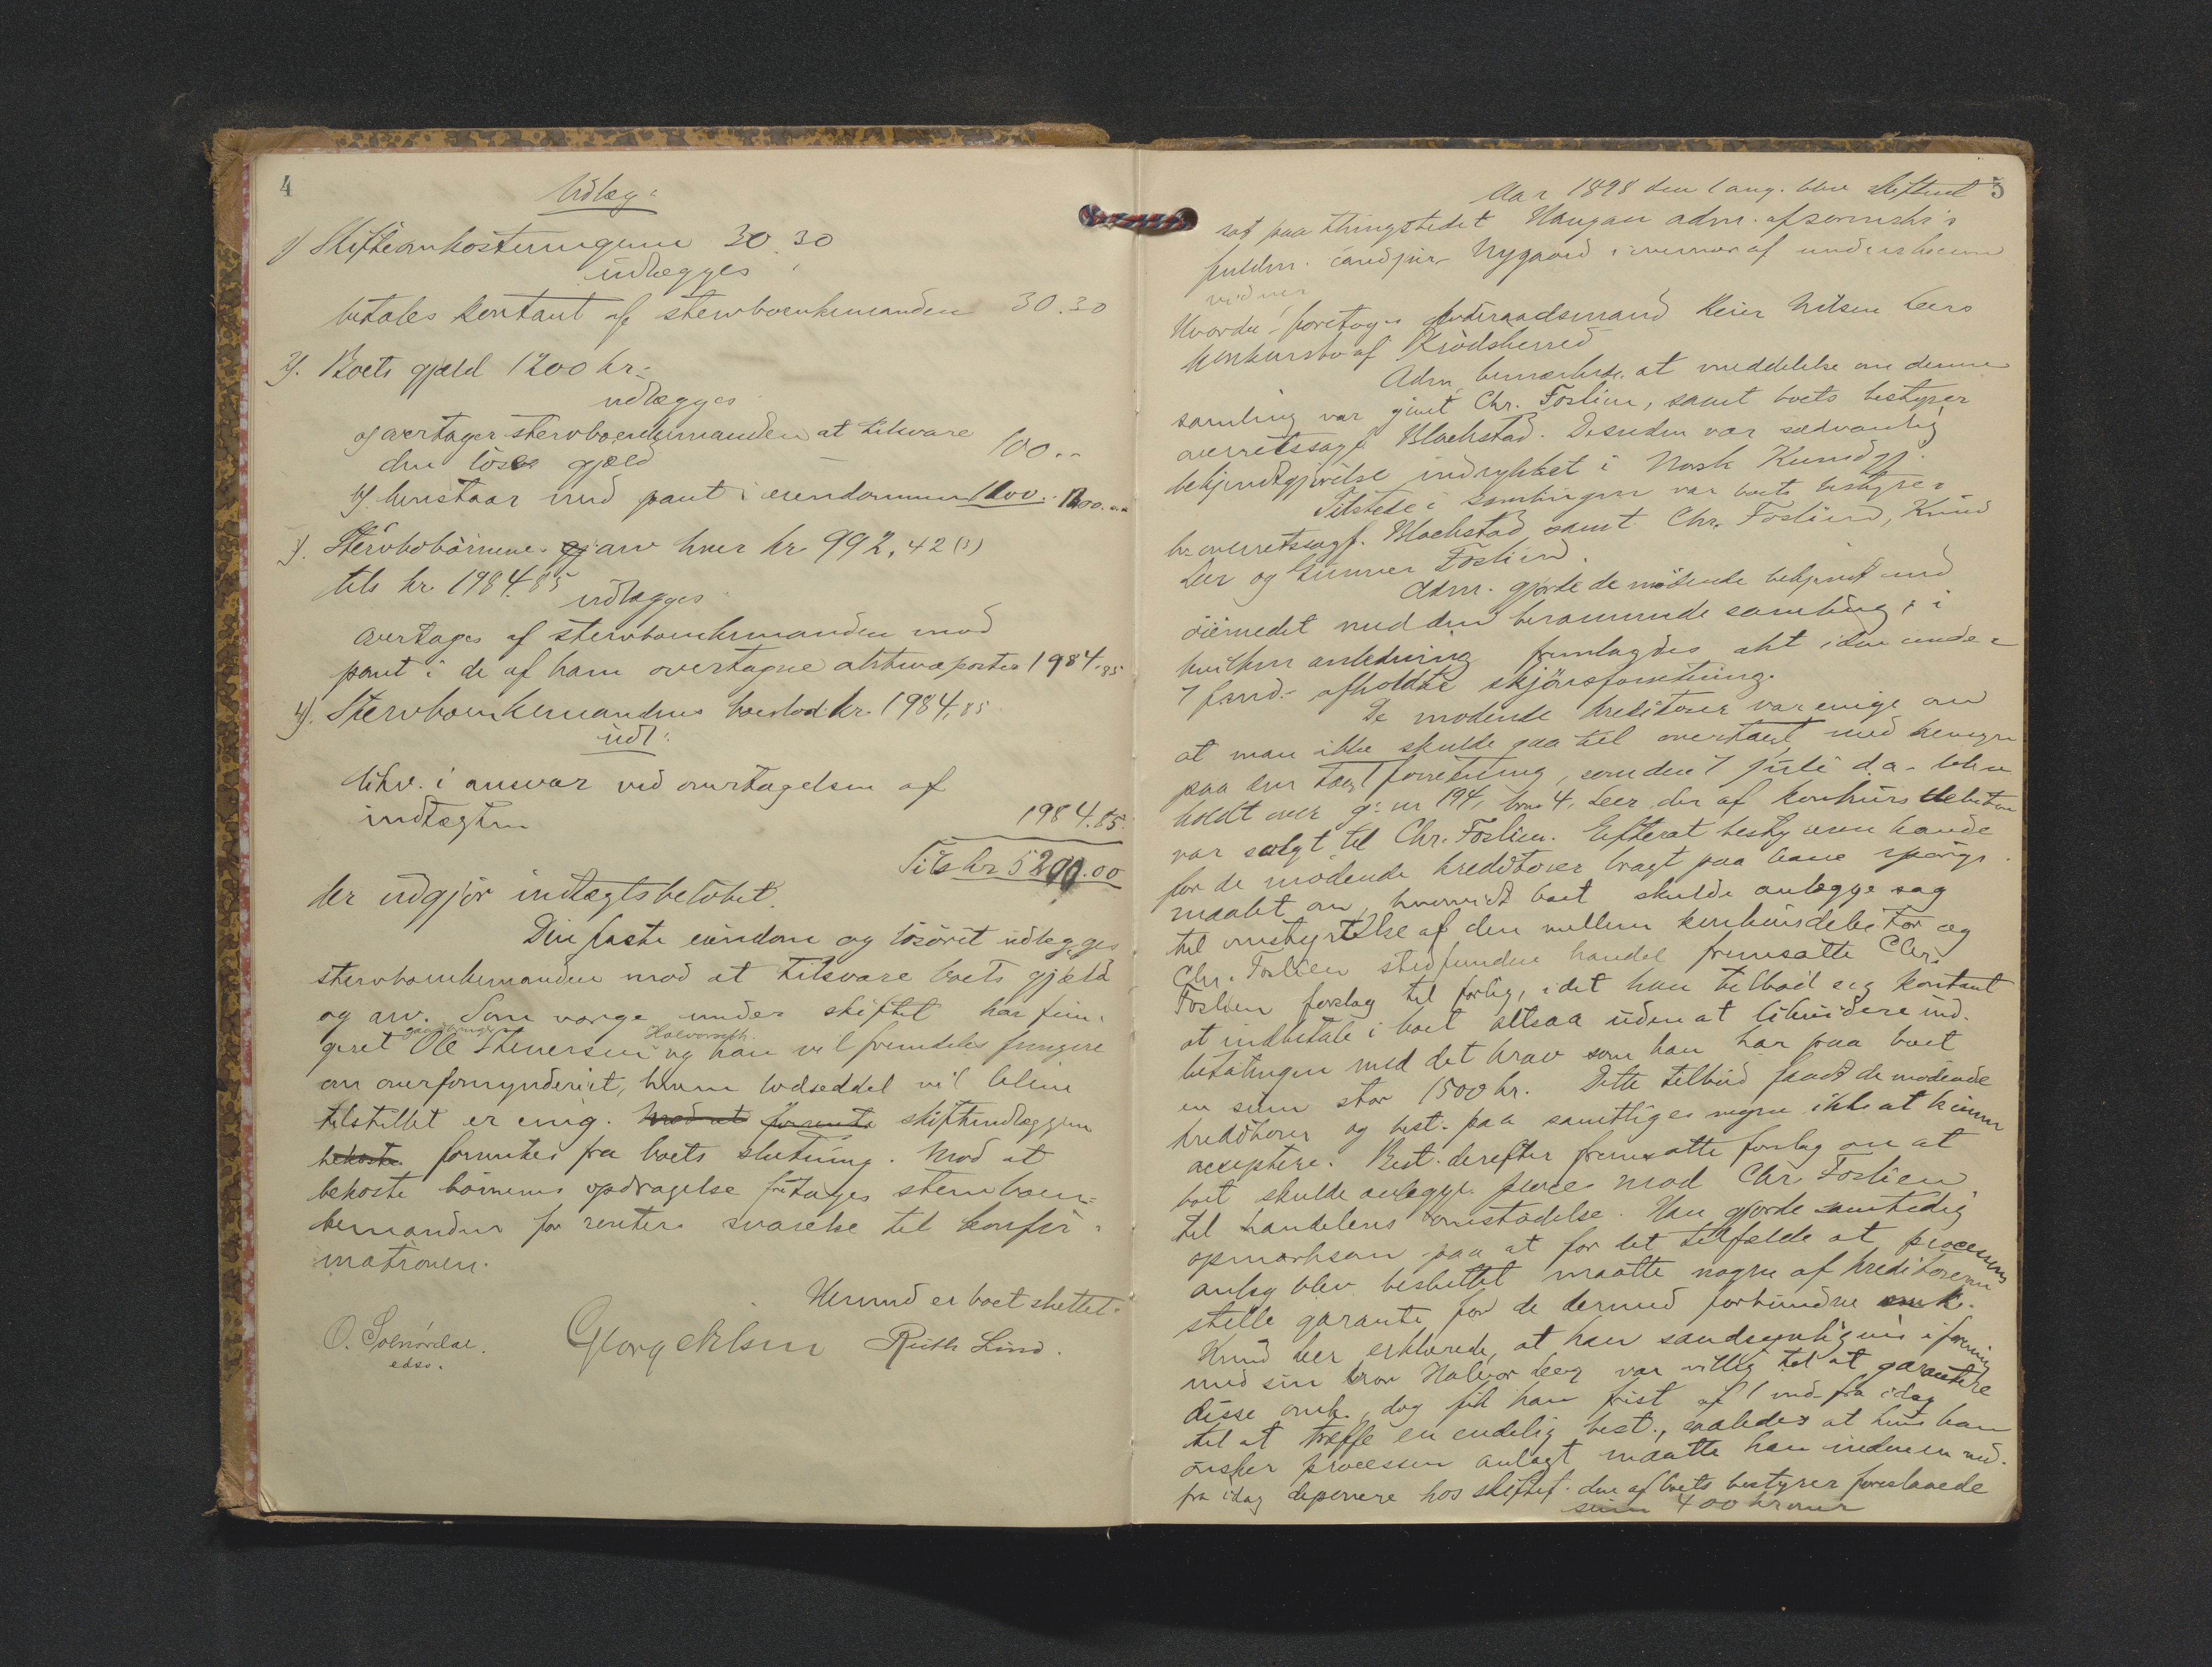 4
Udlæg:
1) Skifteomkostningerne 30.30
udlægges
betales kontant af stervboenkemanden 30.30
2). Boets gjæld 1200 kr.
udlægges
a) overtager stervboenkemanden at tilsvare
den løse gjæld — 100..
b) henstaar med pant i eiendommen 1100.. 1200...
3). Stervbobørnenes arv hver kr. 992,42 (½)
tils kr. 1984.85
udlægges
overtages af stervboenkemanden mod
pant i de af ham overtagne aktivaposter 1984.85
4). Stervboenkemandens boeslod kr. 1984,85
udl:
likv. i ansvar ved overtagelsen af
indtægten 1984.85
Tils kr 5200.00
der udgjør indtægtsbeløbet.
Den faste eiendom og løsøret udlægges
stervboenkemanden mod at tilsvare boets gjæld
og arv. Som værge under skiftet har fun-
geret Ole Stenersen og han vil fremdeles fungere
Halvorseth
om overformynderiet, hvem lodseddel vil blive
tilstillet er enig. Mod at forrente skifteudlæggene
bekoste forrentes fra boets slutning. Mod at
bekoste børnenes opdragelse fritages stervboen-
kemanden for renters svarelse til konfir-
mationen.
Hermed er boet sluttet.
O. Solnørdal.
edsv.
Georg Nelsen Ruth Lind.
Aar 1898 den 1 aug. blev skifteret 5
sat paa thingstedet Haugan adm. af sorenskr's
fuldm. cand jur Nygaard i nærvær af underskrevne
vidner
Hvorda foretoges foderaadsmand Reier Nilsen Leers
konkursbo af Krødsherred
Adm. bemærkede at meddelelse om denne
samling var givet Chr. Foslien, samt boets bestyrer
overretssagf. Blackstad. Desuden var sædvanlig
bekjendtgjørelse indrykket i Norsk Kundgj.
Tilstede i samlingen var boets bestyrer
hr overretssagf. Blackstad samt Chr. Foslien, Knud
Leer og Gunner Foslien.
Adm. gjorde de mødende bekjendt med
øiemedet med den berammede samling, i
hvilken anledning fremlagdes akt i den under
7 f.md. afholdte skjønsforretning.
De mødende kreditorer var enige om
at man ikke skulde gaa til overtaxt med hensyn
paa den taxtforretning, som den 7 juli d.a. blev
holdt over g.nr 194, brn 4, Leer der af konkursdebitor
var solgt til Chr. Foslien. Efterat bestyreren havde
for de mødende kreditorer bragt paa bane spørgs-
maalet om, hvorvidt boet skulde anlægge sag
til omstyrtelse af den mellem konkursdebitor og
Chr. Foslien stedfundne handel fremsatte Chr.
Foslien forslag til forlig, idet han tilbød sig kontant
at indbetale i boet altsaa uden at likvidere ind-
betalingen med det krav som han har paa boet
en sum stor 1500 kr. Dette tilbud fandt de mødende
kreditorer og best. paa samtliges vegne ikke at kunne
acceptere. Best. derefter fremsatte forslag om at
boet skulde anlægge proces mod Chr. Foslien
til handelens omstødelse. Han gjorde samtidig
opmærksom paa at for det tilfælde at processens
anlæg blev besluttet maatte nogen af kreditorerne
stille garanti for de dermed forbundne omk.
Knud Leer erklærede, at han sandsynligvis i forening
med sin bror Halvor Leer var villig til at garantere
disse omk., dog fik han frist af 1 md. fra idag
til at træffe en endelig best., saaledes at hvis han
ønsker processen anlagt maatte han inden en md.
fra idag deponere hos skiftef. den af boets bestyrer foreslaaede
sum 400 kroner